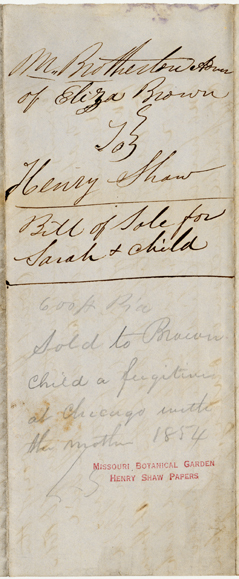 M. Brotherton Adm
of Eliza Brown
To
Henry Shaw
Bill of Sale for
Sarah & child
Sold to Brown
child a fugitive
at Chicago with
the mother 1854
MISSOURI BOTANICAL GARDEN
HENRY SHAW PAPERS